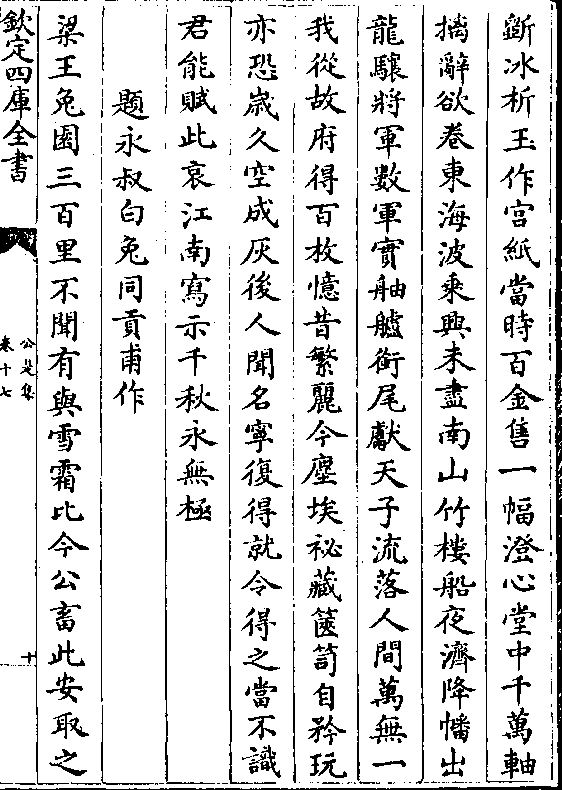 斵冰析玉作宫紙當時百金售一幅澄心堂中千萬軸
摛辭欲卷東海波乘興未盡南山竹樓船夜濟降幡出
龍驤將軍數軍實舳艫銜尾獻天子流落人間萬無一
我從故府得百枚憶昔繁麗今塵埃祕藏篋笥自矜玩
亦恐歳久空成灰後人聞名寧復得就令得之當不識
君能賦此哀江南寫示千秋永無極
題永叔白兔同貢甫作
梁王兔園三百里不聞有與雪霜比今公畜此安取之
欽定四庫全書
公是集
卷十七
十